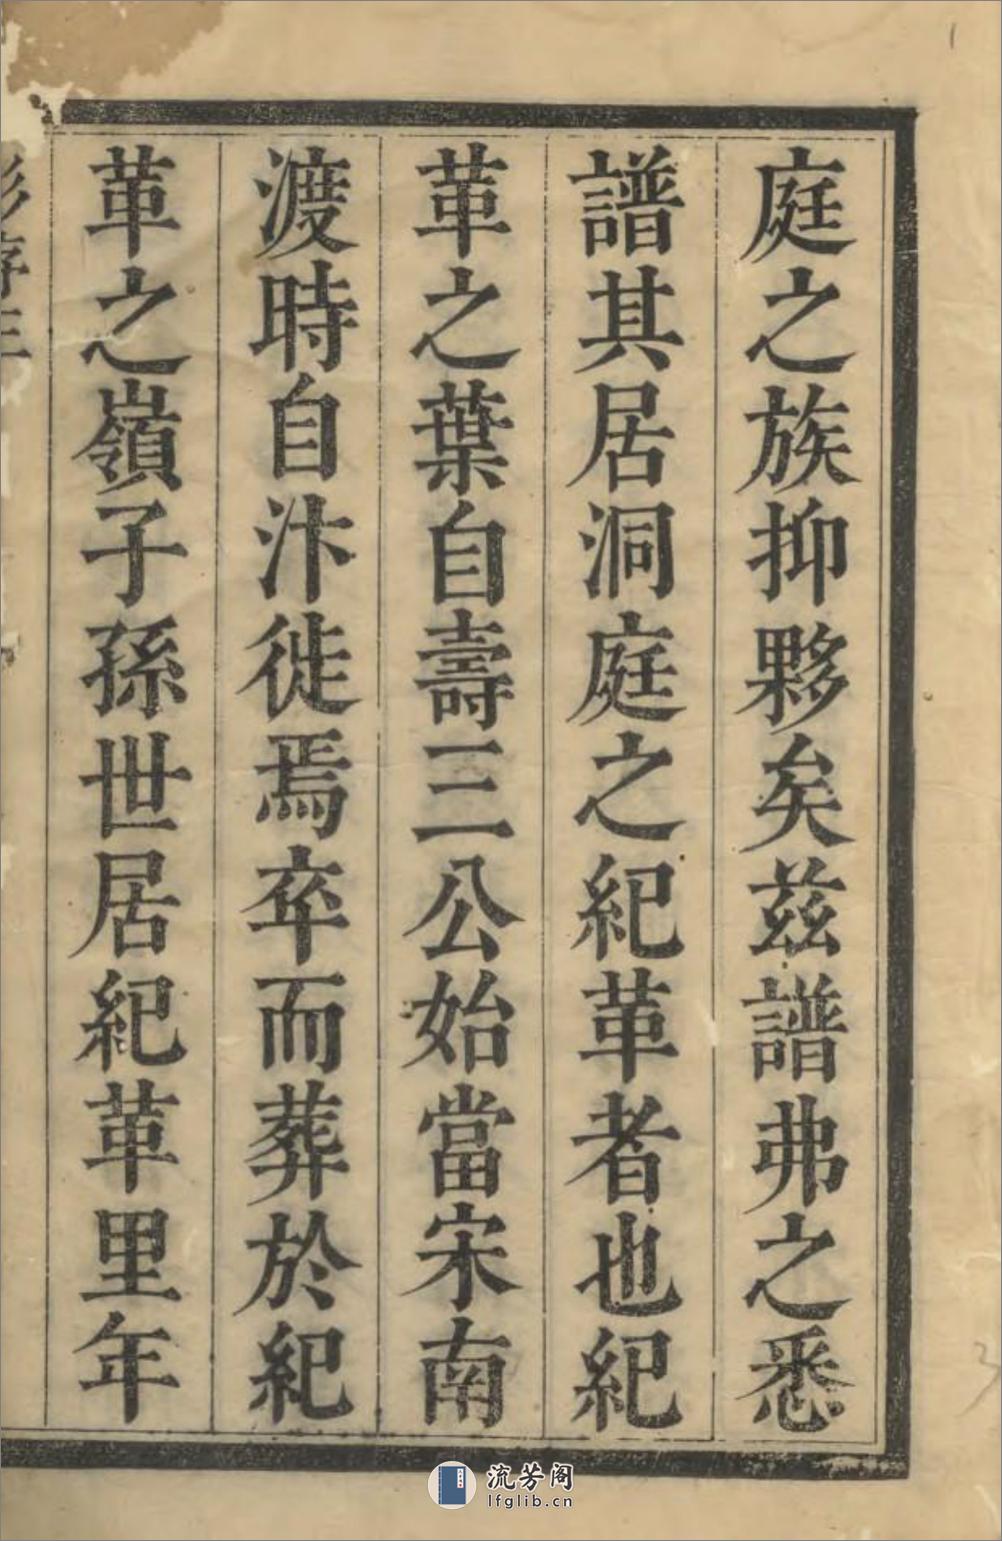 庭之族抑夥矣茲譜弗之悉
譜其居洞庭之紀革者也紀
革之葉自壽三公始當宋南
渡時自汴徙焉卒而葬於紀
革之嶺子孫世居紀革里年
序三
流芳阁
lfglib.cn